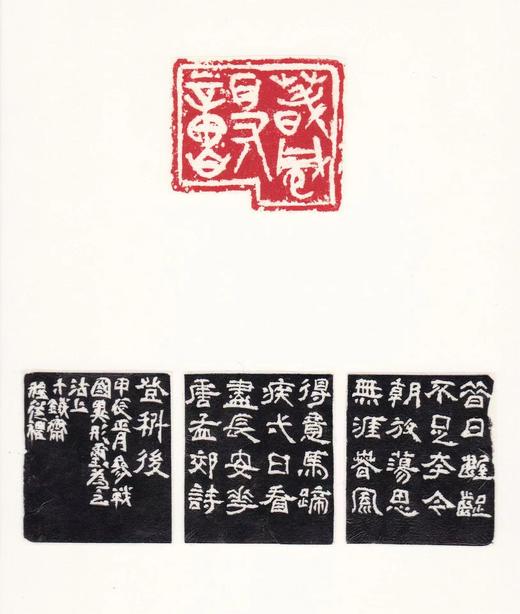 昔日齷齪
不足夸今
朝放蕩思
無涯春風
得意馬蹄
疾弌日看
盡長安花
唐孟郊詩
登科後
甲辰正月參戰
國異形璽為之
沽上
鐵齋